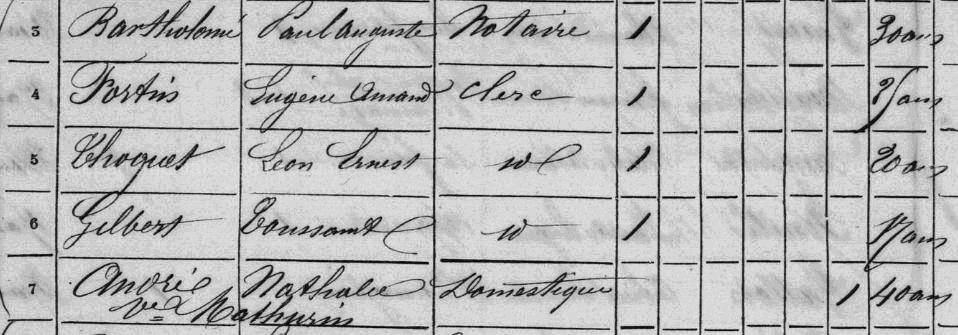 3 Bartholomé Paul Auguste Notaire 1 30 ans
4 Fortin Eugène Amand Clerc 1 25 ans
5 Choquet Léon Ernest id 1 20 ans
6 Gilbert Toussaint id 1 17 ans
7 André Nathalie Domestique 1 40 ans
ve Mathurin